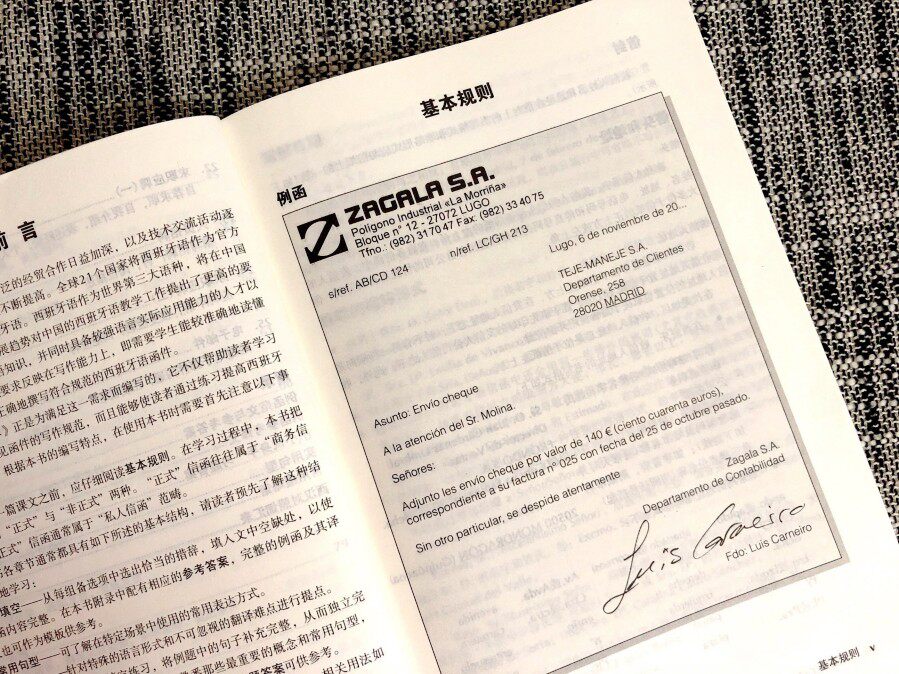 前 言
泛的经贸合作日益加深，以及技术交流活动逐
不断提高。全球21个国家将西班牙语作为官方
牙语。西班牙语作为世界第三大语种，将在中国
展趋势对中国的西班牙语教学工作提出了更高的要
言知识，并同时具备较强语言实际应用能力的人才以
要求反映在写作能力上，即需要学生能较准确地读懂
正确地撰写符合规范的西班牙语函件。
》正是为满足这一需求而编写的，它不仅帮助读者学习
见函件的写作规范，而且能够使读者通过练习提高西班牙
根据本书的编写特点，在使用本书时需要首先注意以下事
篇课文之前，应仔细阅读基本规则。在学习过程中，本书把
“正式”与“非正式”两种。“正式”信函往往属于“商务信
正式”信函通常属于“私人信函”范畴。
各章节通常都具有如下所述的基本结构，请读者预先了解这种结
地学习：
填空——从每组备选项中选出恰当的措辞，填入文中空缺处，以使
函内容完整。在本书附录中配有相应的参考答案，完整的例函及其译
也可作为模板供参考。
常用句型——可了解在特定场景中使用的常用表达方式。
——针对特殊的语言形式和不可忽视的翻译难点进行提点。
练习，将例题中的句子补充完整，从而独立完
悉那些最重要的概念和常用句型，
答案可供参考。
相关用法如
基本规则
例函
ZAGALA S.A.
Polígono Industrial «La Morriña»
Bloque nº 12 - 27072 LUGO
Tfno.: (982) 317047 Fax: (982) 33 40 75
s/ref. AB/CD 124 n/ref. LC/GH 213
Lugo, 6 de noviembre de 20...
TEJE-MANEJE S.A.
Departamento de Clientes
Orense, 258
28020 MADRID
Asunto: Envío cheque
A la atención del Sr. Molina.
Señores:
Adjunto les envío cheque por valor de 140 € (ciento cuarenta euros),
correspondiente a su factura nº 025 con fecha del 25 de octubre pasado.
Sin otro particular, se despide atentamente
Zagala S.A.
Departamento de Contabilidad
Luis Carneiro
Fdo: Luis Carneiro
基本规则 V